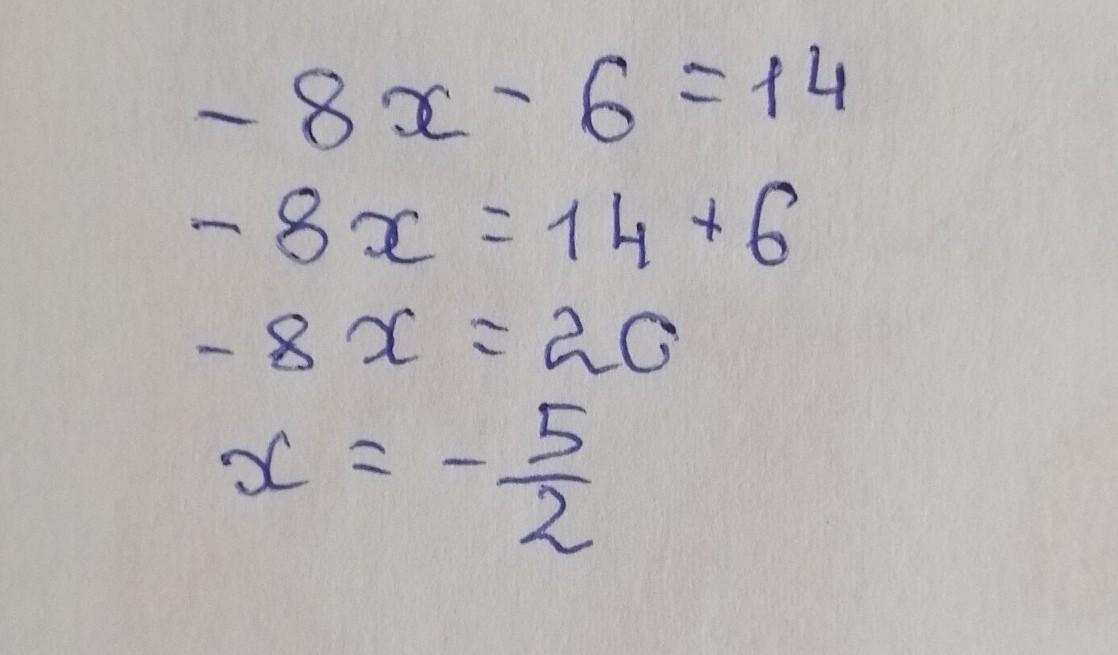 - 8x - 6 = 14
- 8x = 14 + 6
- 8x = 20
x = - 5/2